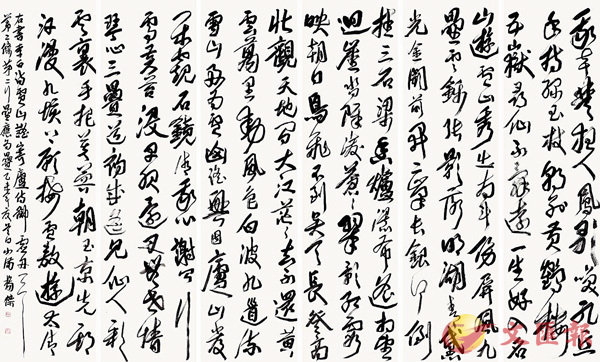 我本楚狂人鳳歌笑孔丘
手持綠玉杖朝別黃鶴樓
五嶽尋仙不辭遠一生好入名
山遊廬山秀出南斗傍屏風九
疊雲錦張影落明湖青黛
光金闕前開二峰長銀河倒
掛三石梁香爐瀑布遙相望
迴崖沓嶂凌蒼蒼翠影紅霞
映朝日鳥飛不到吳天長登高
壯觀天地間大江茫茫去不還黃
雲萬里動風色白波九道流
雪山好為廬山謠興因廬山發
閑窺石鏡清我心謝公行
處蒼苔沒早服還丹無世情
琴心三疊道初成遙見仙人彩
雲裏手把芙蓉朝玉京先期
汗漫九垓上願接盧敖遊太清
右書李白廬山謠寄盧侍御虛舟
第二條第二行
文匯報